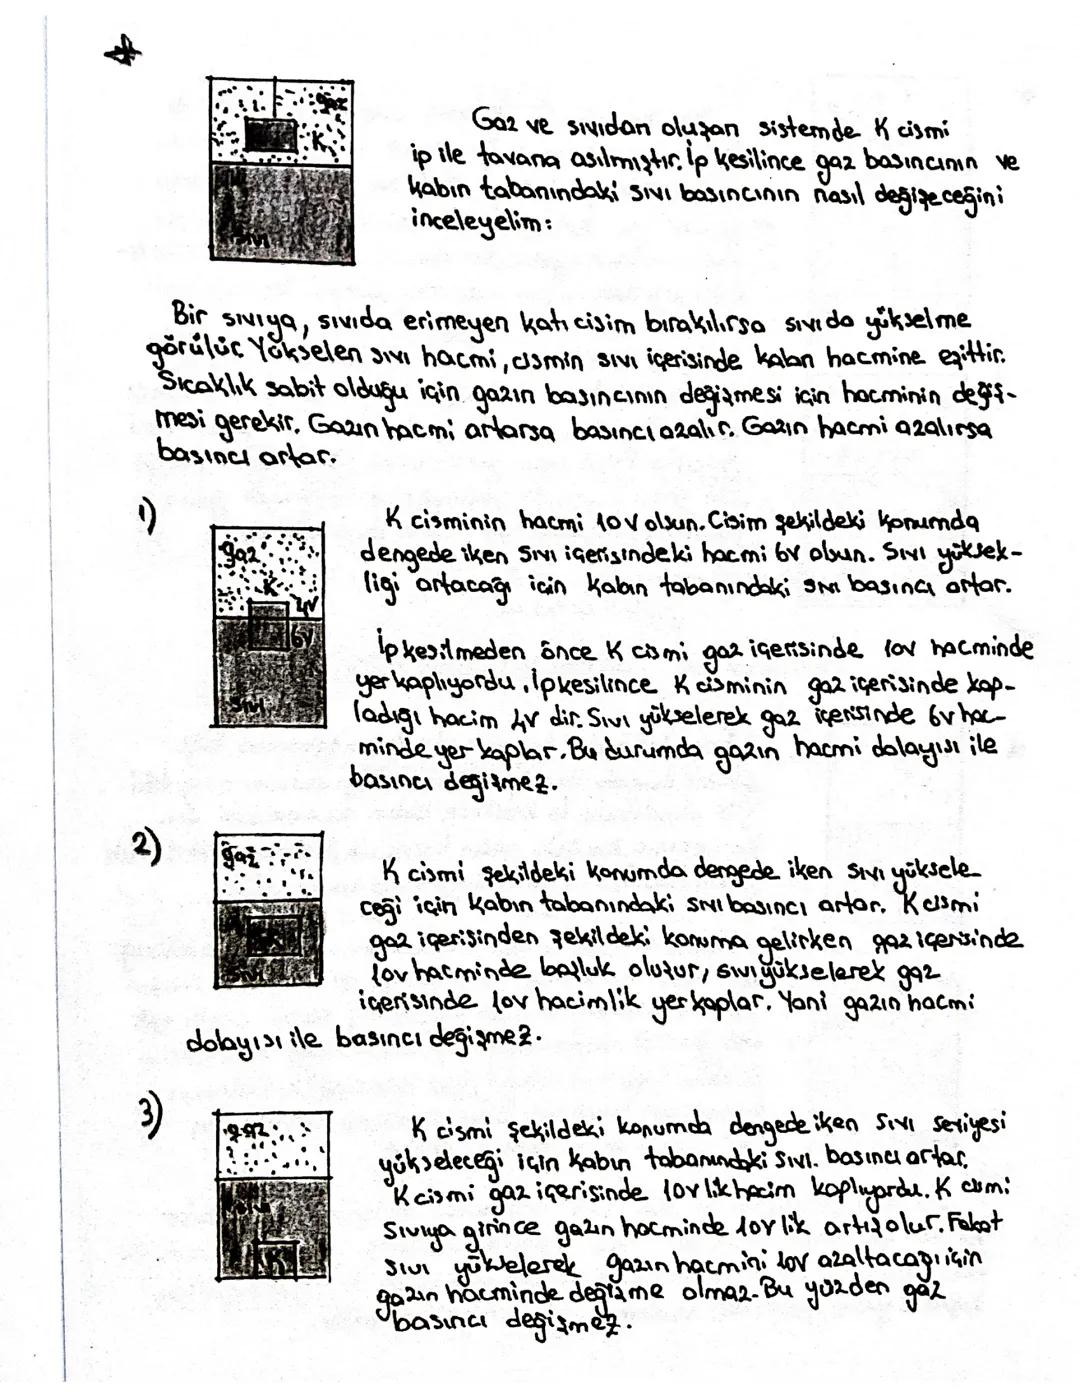 gaz
K
Sıvı
Gaz ve sıvıdan oluşan sistemde K cismi
ip ile tavana asılmıştır. İp kesilince gaz basıncının ve
kabın tabanındaki sıvı basıncının nasıl değişeceğini
inceleyelim:
Bir sıvıya, sıvıda erimeyen katı cisim bırakılırsa sıvıda yükselme
görülür. Yükselen sıvı hacmi, cismin sıvı içerisinde kalan hacmine eşittir.
Sıcaklık sabit olduğu için gazın basıncının değişmesi için hacminin değiş-
mesi gerekir. Gazın hacmi artarsa basıncı azalır. Gazın hacmi azalırsa
basıncı artar.
1)
gaz
K
4V
6V
Sıvı
K cisminin hacmi 10V olsun. Cisim şekildeki konumda
dengede iken sıvı içerisindeki hacmi 6V olsun. Sıvı yüksek-
liği artacağı için kabın tabanındaki sıvı basıncı artar.
İp kesilmeden önce K cismi gaz içerisinde 10V hacminde
yer kaplıyordu, İp kesilince K cisminin gaz içerisinde kap-
ladığı hacim 4V dir. Sıvı yükselerek gaz içerisinde 6V hac-
minde yer kaplar. Bu durumda gazın hacmi dolayısı ile
basıncı değişmez.
2)
gaz
K
Sıvı
K cismi şekildeki konumda dengede iken sıvı yüksele
ceği için kabın tabanındaki sıvı basıncı artar. K cismi
gaz içerisinden şekildeki konuma gelirken gaz içerisinde
10V hacminde boşluk oluşur, sıvı yükselerek gaz
içerisinde 10V hacimlik yer kaplar. Yani gazın hacmi
dolayısı ile basıncı değişmez.
3)
gaz
K
K cismi şekildeki konumda dengede iken Sıvı seviyesi
yükseleceği için kabın tabanındaki sıvı. basıncı artar.
K cismi gaz içerisinde 10V lik hacim kaplıyordu. K cismi
sıvıya girince gazın hacminde 10V lik artış olur. Fakat
sıvı yükselerek gazın hacmini 10V azaltacağı için
gazın hacminde değişme olmaz. Bu yüzden gaz
basıncı değişmez.